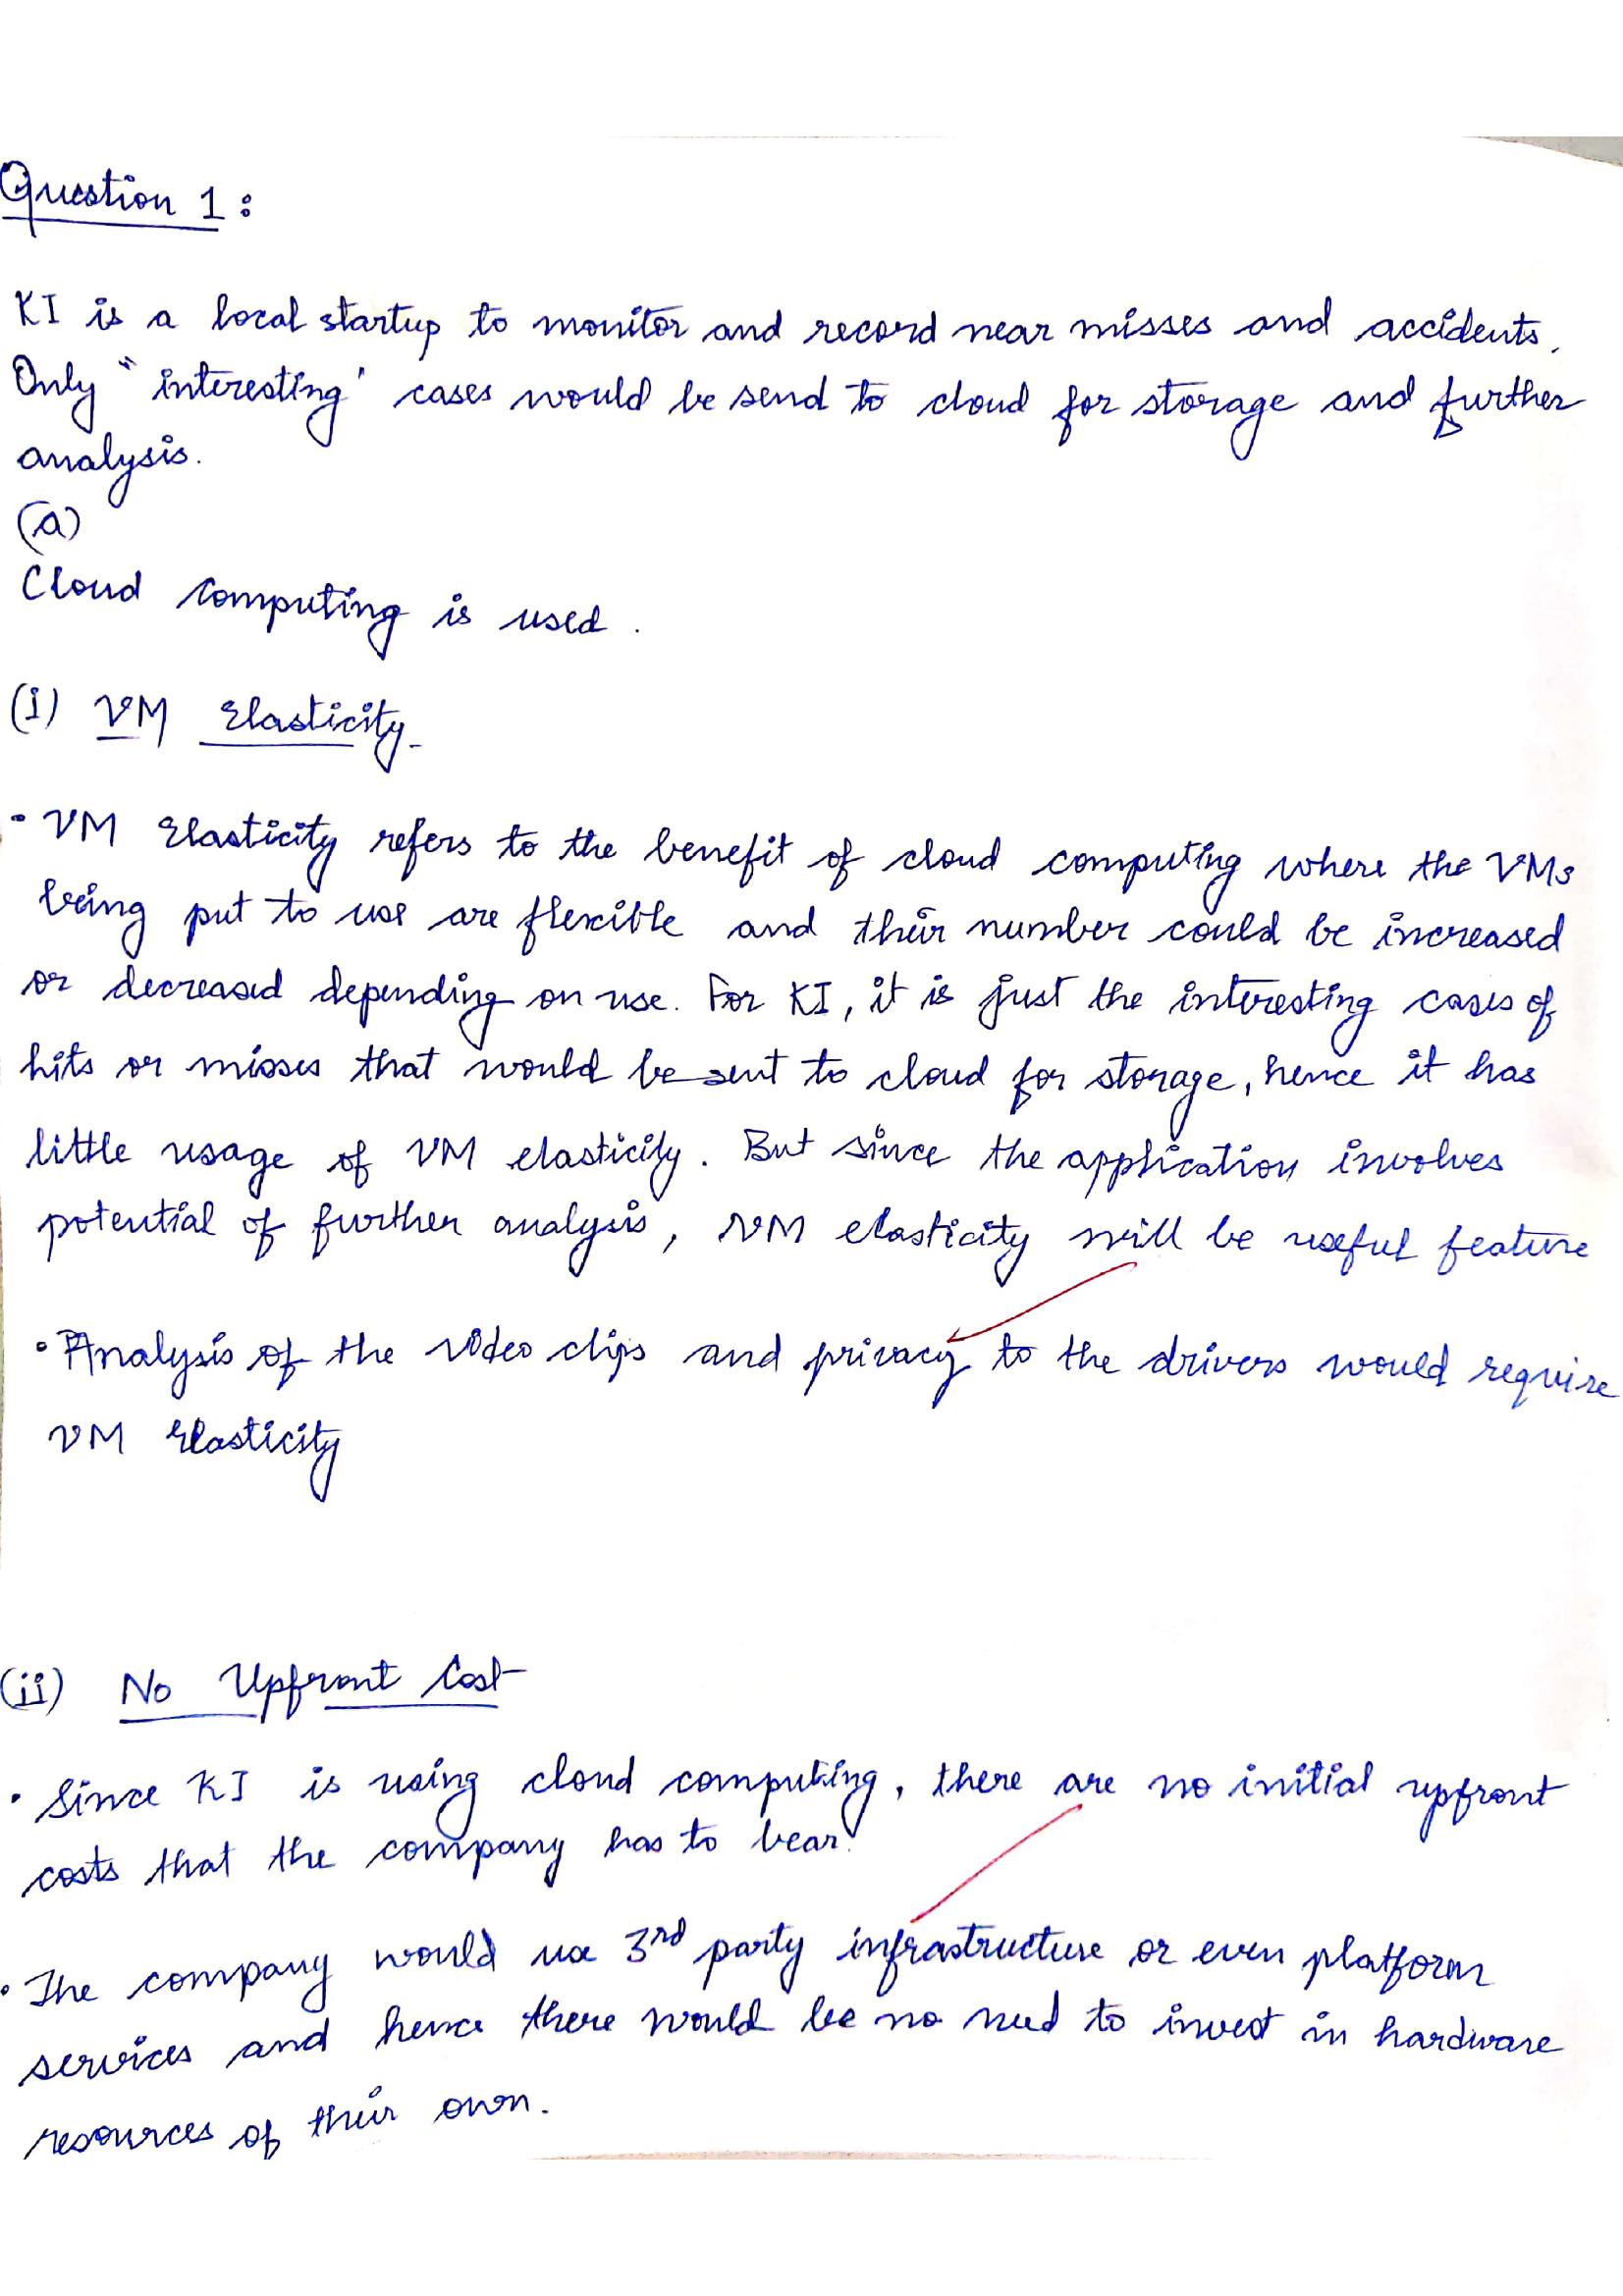 Question 1:
KI is a local startup to monitor and record near misses and accidents.
Only "interesting' cases would be send to cloud for storage and further
analysis.
(a)
Cloud computing is used.
(i) VM Elasticity-
• VM Elasticity refers to the benefit of cloud computing where the VMs
being put to use are flexible and their number could be increased
or decreased depending on use. For KI, it is just the interesting cases of
hits or misses that would be sent to cloud for storage, hence it has
little usage of VM elasticity. But since the application involves
potential of further analysis, VM elasticity will be useful feature
• Analysis of the video clips and privacy to the drivers would require
VM Elasticity
(ii) No Upfront Cost-
• Since KI is using cloud computing, there are no initial upfront
costs that the company has to bear.
• The company would use 3rd party infrastructure or even platform
services and hence there would be no need to invest in hardware
resources of their own.